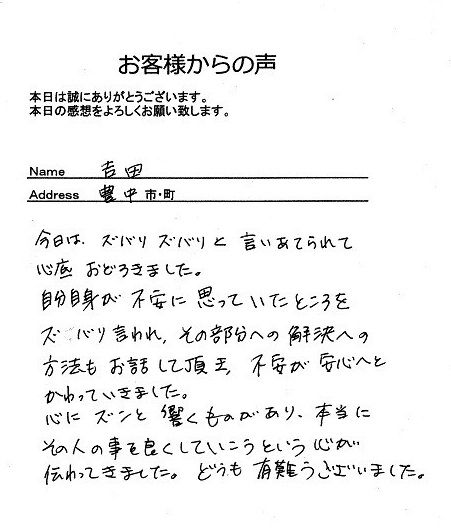 お客様からの声
本日は誠にありがとうございます。
本日の感想をよろしくお願い致します。
Name 吉田
Address 豊中 市・町
今日は、ズバリズバリと言いあてられて
心底おどろきました。
自分自身が不安に思っていたところを
ズバリ言われ、その部分への解決への
方法もお話して頂き、不安が安心へと
かわっていきました。
心にズンと響くものがあり、本当に
その人の事を良くしていこうという心が
伝わってきました。どうも有難うございました。